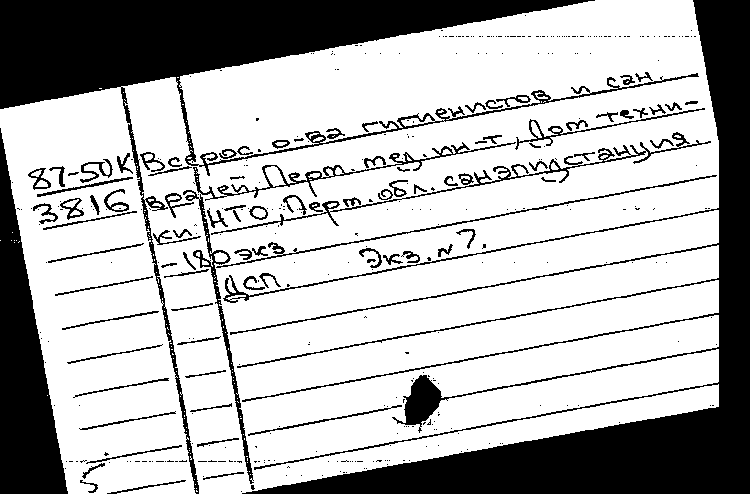 87-50К Всерос. о-ва гигиенистов и сан.
3816 врачей, Перм. мед. ин-т, Дом техни-
ки НТО, Перм. обл. санэпидстанция.
-180 экз.
ДСП. Экз. № 7.
5